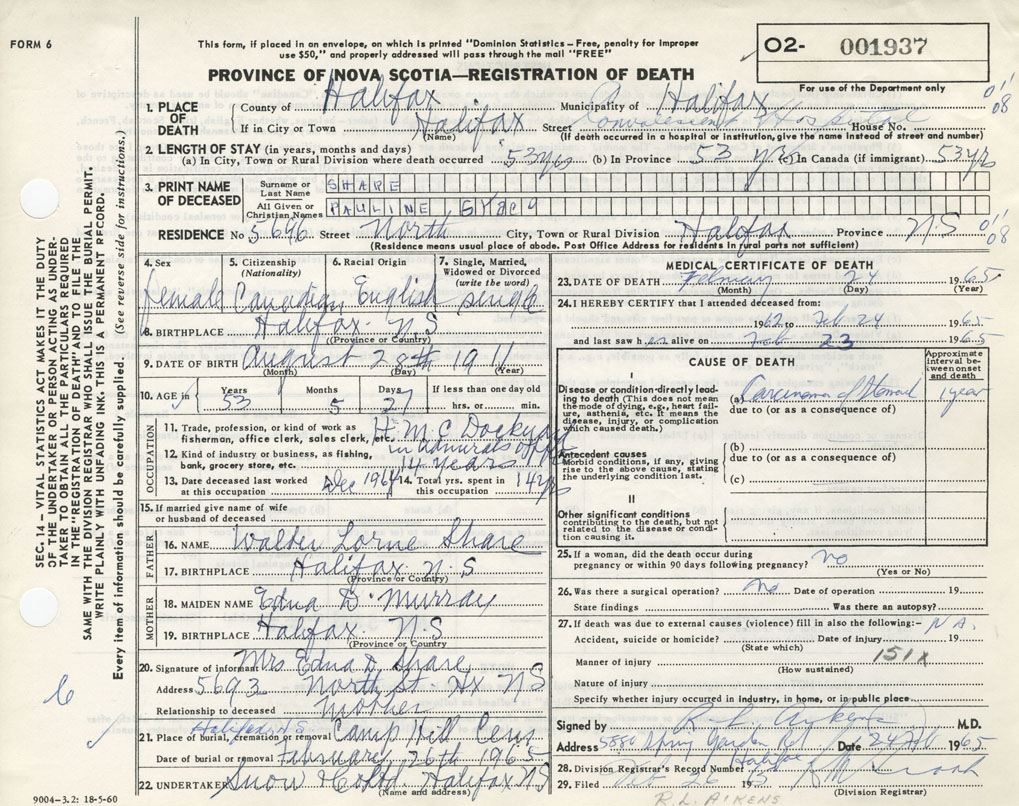 FORM 6
This form, if placed in an envelope, on which is printed "Dominion Statistics – Free, penalty for improper
use $50," and properly addressed will pass through the mail "FREE"
02- 001937
For use of the Department only
PROVINCE OF NOVA SCOTIA—REGISTRATION OF DEATH
1. PLACE OF DEATH
County of Halifax Municipality of Halifax
If in City or Town Halifax (Name) Street Convalescent Hospital House No.
(If death occurred in a hospital or institution, give the name instead of street and number)
2. LENGTH OF STAY (in years, months and days)
(a) In City, Town or Rural Division where death occurred 53 yrs (b) In Province 53 yrs (c) In Canada (if immigrant) 53 yrs
3. PRINT NAME OF DECEASED
Surname or Last Name SHARE
All Given or Christian Names PAULINE GRACE
RESIDENCE No 5696 Street North City, Town or Rural Division Halifax Province N.S
(Residence means usual place of abode. Post Office Address for residents in rural parts not sufficient)
4. Sex female
5. Citizenship (Nationality) Canadian
6. Racial Origin English
7. Single, Married, Widowed or Divorced (write the word) single
8. BIRTHPLACE Halifax N.S
(Province or Country)
9. DATE OF BIRTH August 28th 1911
(Month) (Day) (Year)
10. AGE in Years 53 Months 5 Days 27 If less than one day old hrs. or min.
OCCUPATION
11. Trade, profession, or kind of work as fisherman, office clerk, sales clerk, etc. H.M.C Dockyard
12. Kind of industry or business, as fishing, bank, grocery store, etc. in admirals office
14 years
13. Date deceased last worked at this occupation Dec 1964 14. Total yrs. spent in this occupation 14 yrs
15. If married give name of wife or husband of deceased
FATHER
16. NAME Walter Lorne Share
17. BIRTHPLACE Halifax N.S
(Province or Country)
MOTHER
18. MAIDEN NAME Edna D. Murray
19. BIRTHPLACE Halifax N.S
(Province or Country)
20. Signature of informant Mrs. Edna D. Share
Address 5693 North St. Hx NS
Relationship to deceased mother
21. Place of burial, cremation or removal Halifax N.S Camp Hill Cem
Date of burial or removal February 26th 1965
22. UNDERTAKER Snow & Co Ltd. Halifax NS
(Name and address)
MEDICAL CERTIFICATE OF DEATH
23. DATE OF DEATH February 24 1965
(Month) (Day) (Year)
24. I HEREBY CERTIFY that I attended deceased from:
1962 to Feb 24 1965
and last saw her alive on Feb 23 1965
CAUSE OF DEATH
Approximate interval between onset and death
I
Disease or condition directly leading to death (This does not mean the mode of dying, e.g., heart failure, asthenia, etc. It means the disease, injury, or complication which caused death.)
(a) Carcinoma of Stomach 1 year
due to (or as a consequence of)
Antecedent causes
Morbid conditions, if any, giving rise to the above cause, stating the underlying condition last.
(b)
due to (or as a consequence of)
(c)
II
Other significant conditions contributing to the death, but not related to the disease or condition causing it.
25. If a woman, did the death occur during pregnancy or within 90 days following pregnancy? no
(Yes or No)
26. Was there a surgical operation? no Date of operation 19
State findings Was there an autopsy?
27. If death was due to external causes (violence) fill in also the following:- N.A.
Accident, suicide or homicide? Date of injury 19
(State which)
151X
Manner of injury
(How sustained)
Nature of injury
Specify whether injury occurred in industry, in home, or in public place
Signed by R. L. Aikens M.D.
Address 5880 Spring Garden Rd Halifax Date 24 Feb 1965
28. Division Registrar's Record Number
29. Filed Feb 26 19
(Division Registrar)
R.L. AIKENS
SEC. 14 – VITAL STATISTICS ACT MAKES IT THE DUTY
OF THE UNDERTAKER OR PERSON ACTING AS UNDER-
TAKER TO OBTAIN ALL THE PARTICULARS REQUIRED
IN THE "REGISTRATION OF DEATH" AND TO FILE THE
SAME WITH THE DIVISION REGISTRAR WHO SHALL ISSUE THE BURIAL PERMIT.
WRITE PLAINLY WITH UNFADING INK. THIS IS A PERMANENT RECORD.
Every item of information should be carefully supplied. (See reverse side for instructions.)
9004-3.2: 18-5-60